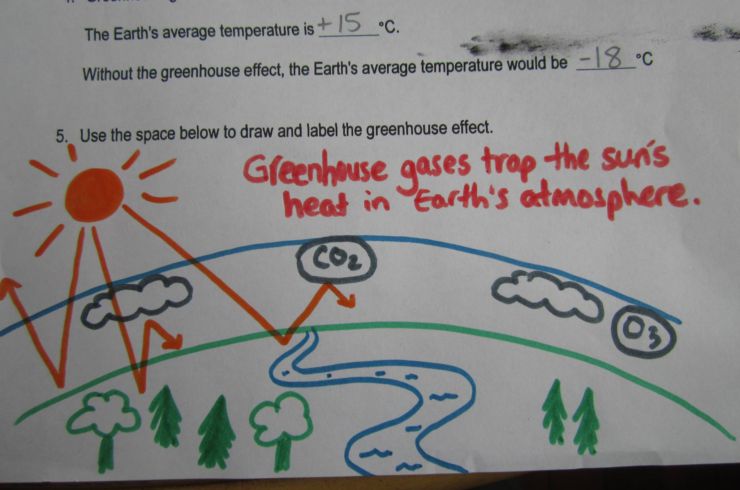 The Earth's average temperature is +15 °C.
Without the greenhouse effect, the Earth's average temperature would be -18 °C
5. Use the space below to draw and label the greenhouse effect.
Greenhouse gases trap the sun's
heat in Earth's atmosphere.
CO₂
O₃